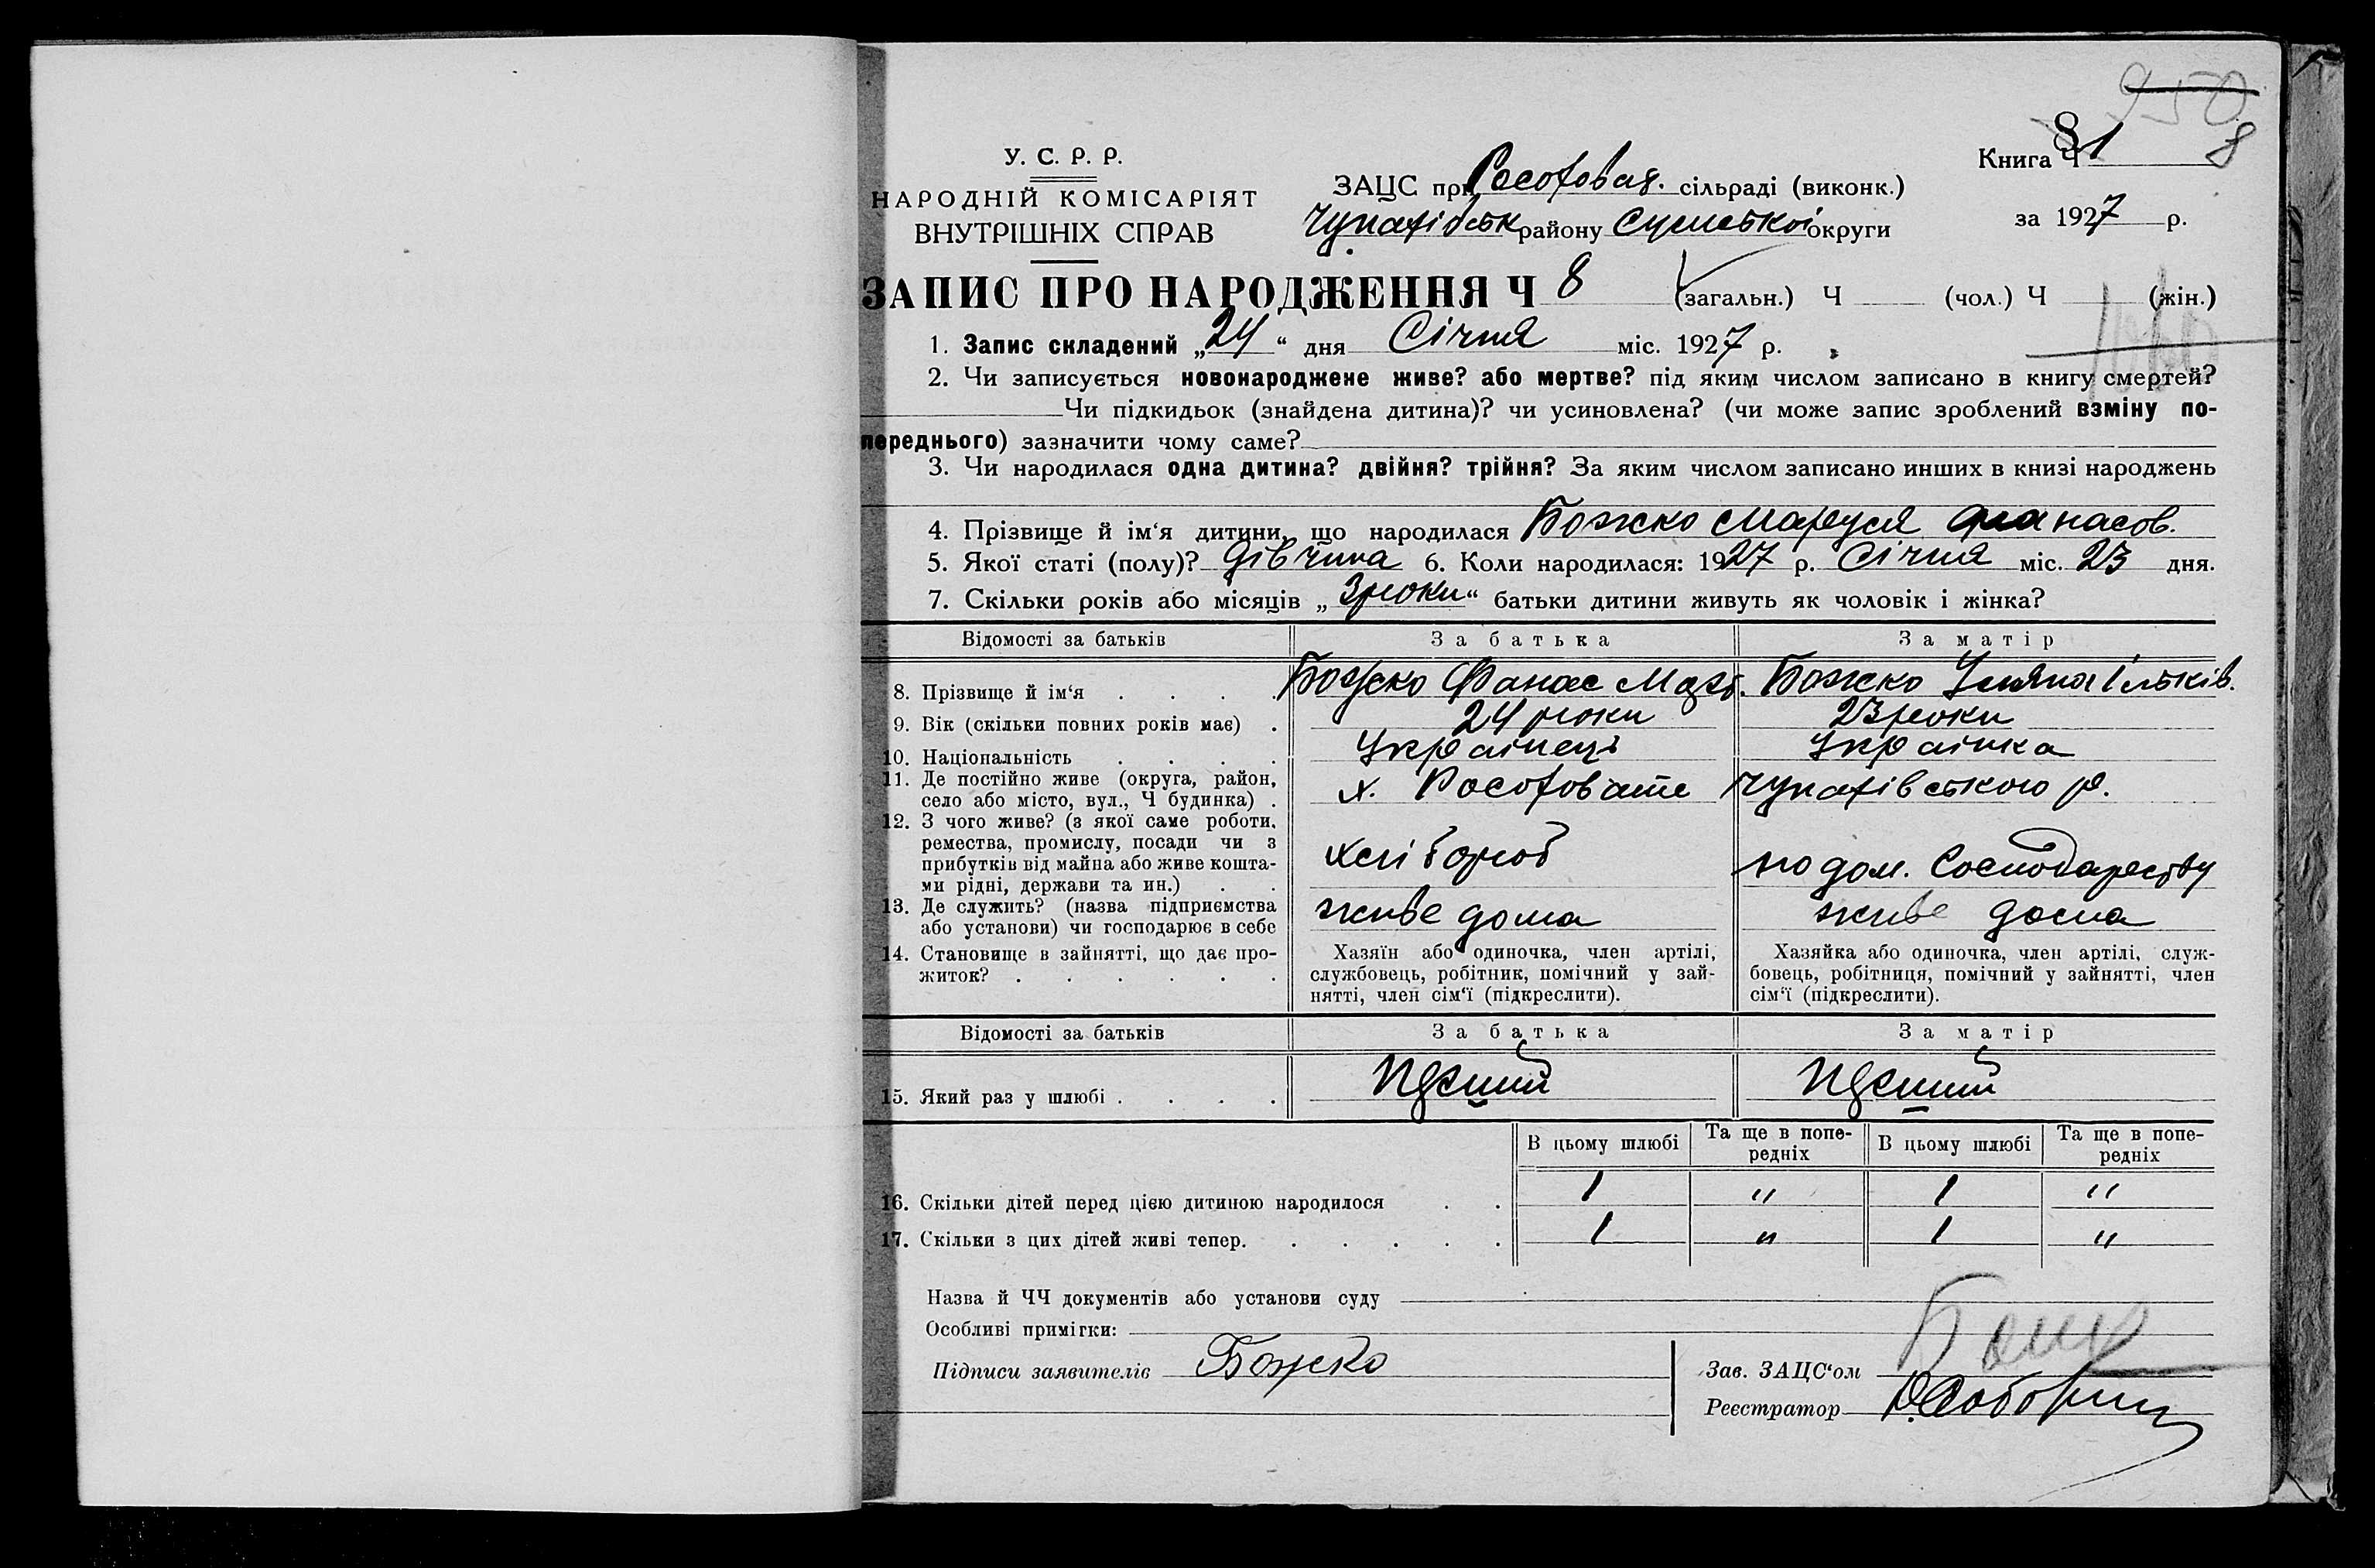 950
У. С. Р. Р.
НАРОДНІЙ КОМІСАРІЯТ
ВНУТРІШНІХ СПРАВ
ЗАЦС при сільраді (виконк.)
району Сумської округи
Книга Ч 1 8
за 1927 р.
ЗАПИС ПРО НАРОДЖЕННЯ Ч 8 (загальн.) Ч (чол.) Ч (жін.)
1. Запис складений „24“ дня Січня міс. 1927 р.
2. Чи записується новонароджене живе? або мертве? під яким числом записано в книгу смертей?
Чи підкидьок (знайдена дитина)? чи усиновлена? (чи може запис зроблений взміну по-
переднього) зазначити чому саме?
3. Чи народилася одна дитина? двійня? трійня? За яким числом записано инших в книзі народжень
4. Прізвище й ім‘я дитини, що народилася Божко Маруся
5. Якої статі (полу)? дівчина 6. Коли народилася: 1927 р. Січня міс. 23 дня.
7. Скільки років або місяців „3 роки“ батьки дитини живуть як чоловік і жінка?
Відомості за батьків За батька За матір
8. Прізвище й ім‘я . . . . Божко Фанас Божко Уляна Ільків.
9. Вік (скільки повних років має) . 24 роки 23 роки
10. Національність . . . . Українець Українка
11. Де постійно живе (округа, район,
село або місто, вул., Ч будинка) . х. р.
12. З чого живе? (з якої саме роботи,
ремества, промислу, посади чи з
прибутків від майна або живе кошта-
ми рідні, держави та ин.) . . хлібороб по дом. Господарству
13. Де служить? (назва підприємства
або установи) чи господарює в себе живе дома живе дома
14. Становище в зайнятті, що дає про-
житок? . . . . . .
Хазяїн або одиночка, член артілі,
службовець, робітник, помічний у зай-
нятті, член сім‘ї (підкреслити).
Хазяйка або одиночка, член артілі, служ-
бовець, робітниця, помічний у зайнятті, член
сім‘ї (підкреслити).
Відомості за батьків За батька За матір
15. Який раз у шлюбі . . . .
В цьому шлюбі Та ще в попе-
редніх В цьому шлюбі Та ще в попе-
редніх
16. Скільки дітей перед цією дитиною народилося . . 1 " 1 "
17. Скільки з цих дітей живі тепер. . . . . . 1 " 1 "
Назва й ЧЧ документів або установи суду
Особливі примігки:
Підписи заявителів Божко
Зав. ЗАЦС‘ом
Реєстратор